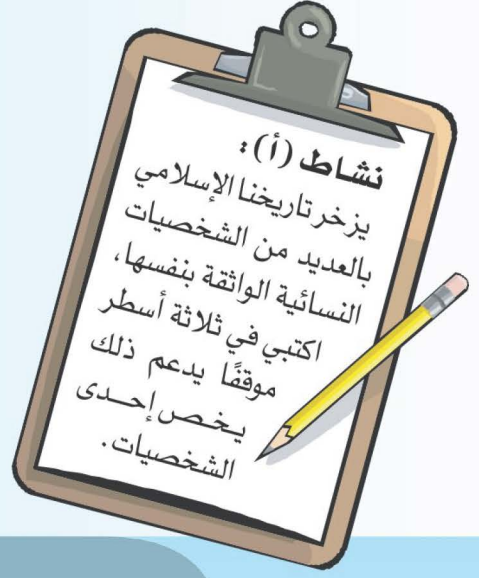 نشاط (أ):
يزخر تاريخنا الإسلامي
بالعديد من الشخصيات
النسائية الواثقة بنفسها،
اكتبي في ثلاثة أسطر
موقفًا يدعم ذلك
يـخـص إحــدى
الشخصيات.